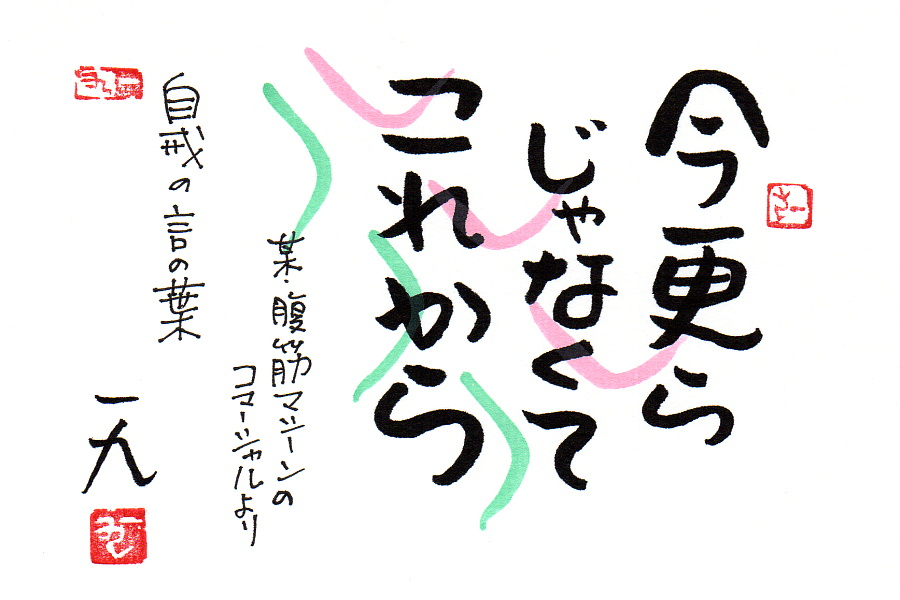 今更ら
じゃなくて
これから
某・腹筋マシーンの
コマーシャルより
自戒の言の葉
一九